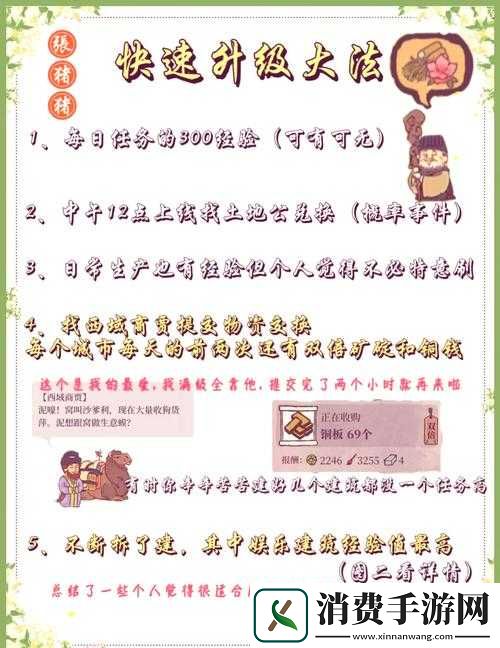 張
猪
猪
快速升级大法
1、每日任务的300经验（可有可无）
2、中午12点上线找土地公兑换（概率事件）
3、日常生产也有经验但个人觉得不必特意刷
4、找西域商贾提交物资交换
每个城市每天的前两次还有双倍矿碇和铜钱
这个是我的最爱，我满级全靠他，提交完了两个小时就再来啦
【西域商贾】
泥嚎！窝叫沙爹利，现在大量收购货
萍。泥想跟窝做生意嫫？
正在收购
铜板 69个
双倍
报酬： 2246 3255 4
有时你辛辛苦苦建好几个建筑都没一个任务高
5、不断拆了建，其中娱乐建筑经验值最高
（图二看详情）
总结了一些个人觉得很适合
消费手游网
www.xinnanwang.com